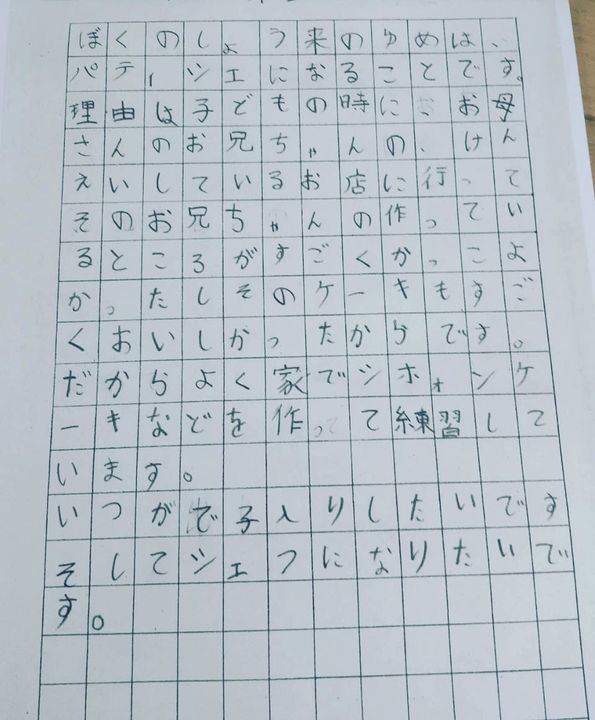 ぼくのしょう来のゆめは、
パティシェになることです。
理由は子どもの時にお母
さんのお兄ちゃんの、けん
えいしているお店に行って
そのお兄ちゃんの作ってい
るところがすごくかっこよ
かったしそのケーキもすご
くおいしかったからです。
だからよく家でシホォンケ
ーキなどを作って練習して
います。
いつかで子入りしたいです
そしてシェフになりたいで
す。